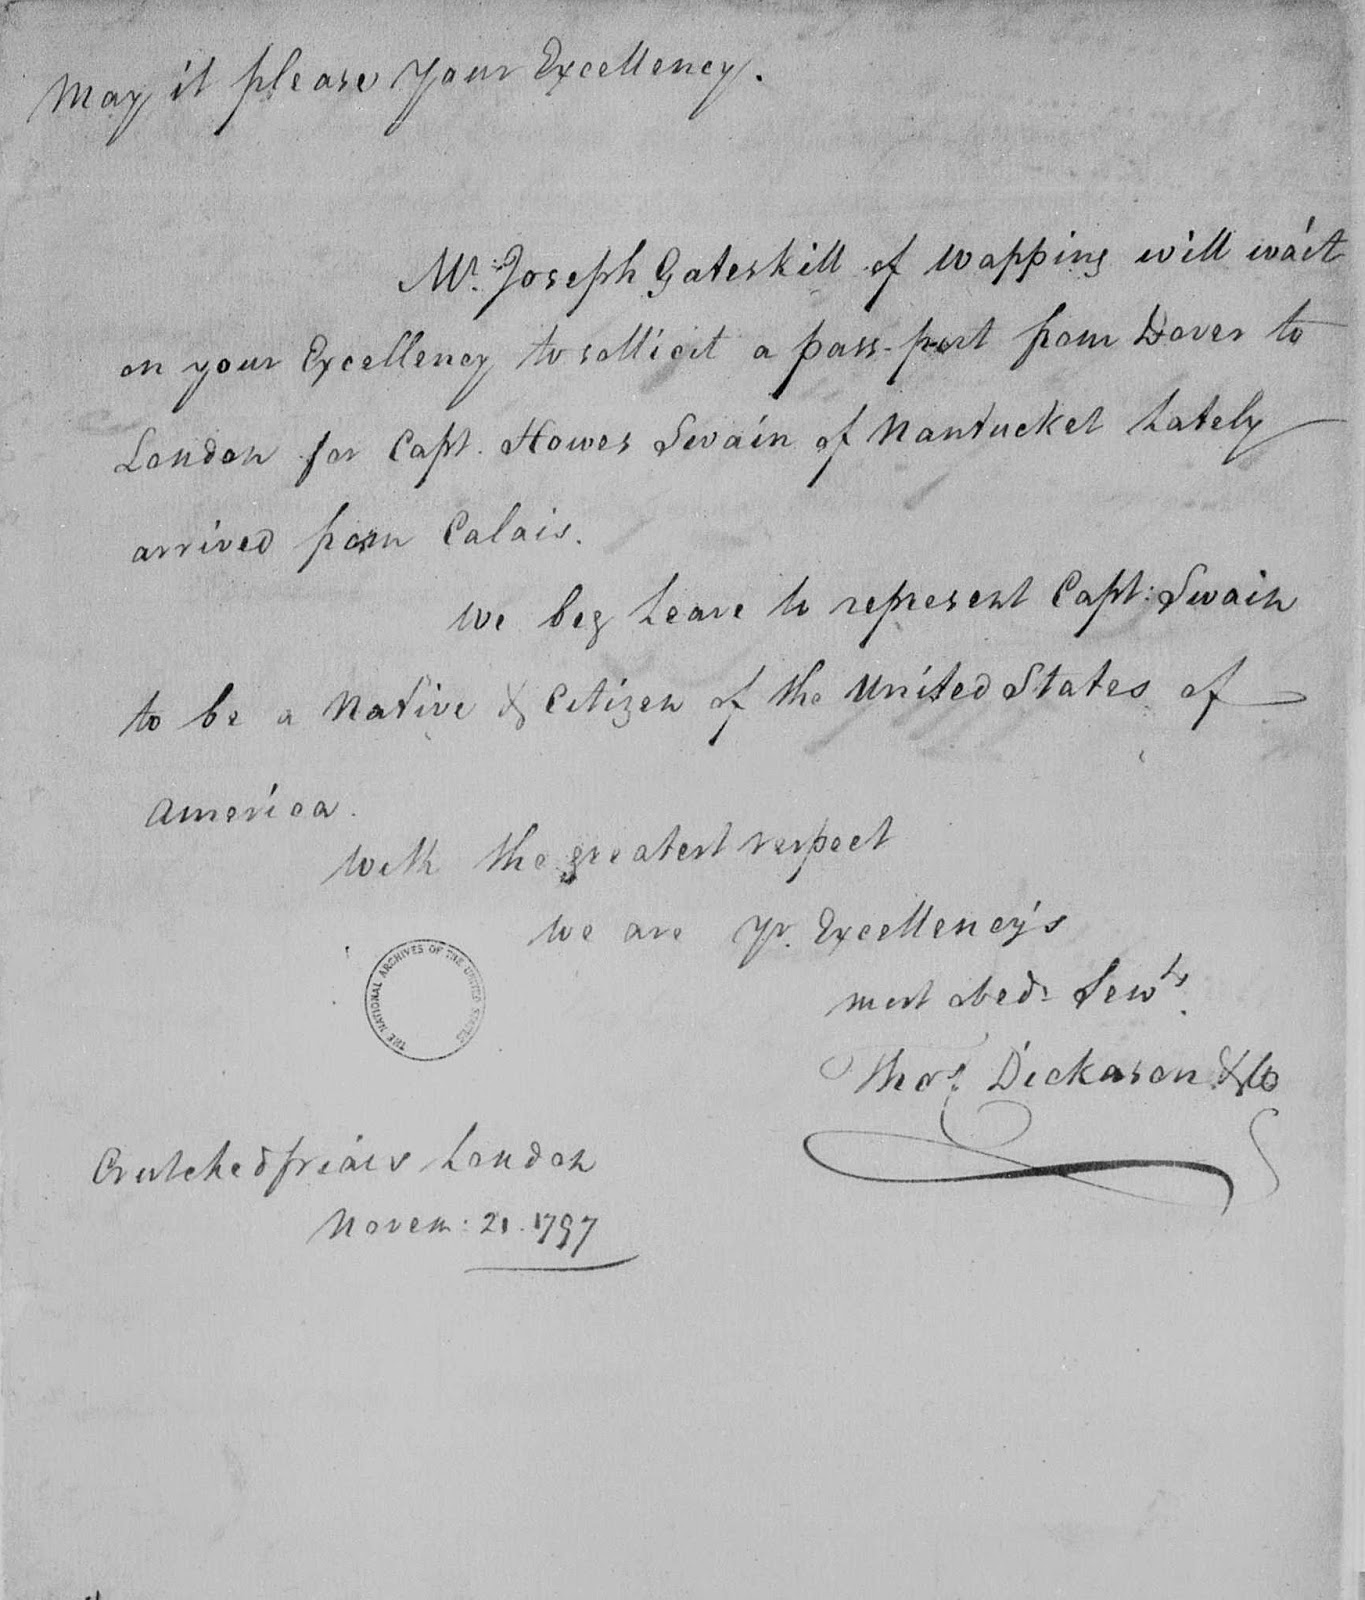 May it please Your Excellency.
Mr. Joseph Gateskill of Wapping will wait
on your Excellency to sollicit a pass-port from Dover to
London for Capt. Howes Swain of Nantucket Lately
arrived from Calais.
We beg Leave to represent Capt: Swain
to be a Native & Citizen of the United States of
America.
With the greatest respect
We are Yr. Excellency's
most obed: Servts.
Thos. Dickason & Co
THE NATIONAL ARCHIVES OF THE UNITED STATES
Crutched friars London
Novem: 21. 1797